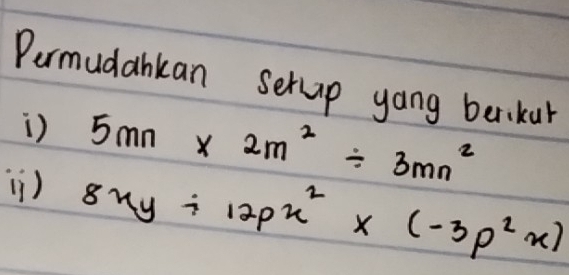 Permudahkan setiap yang berikut
i) 5mn × 2m² ÷ 3mn²
ii) 8xy ÷ 12px² × (-3p²x)